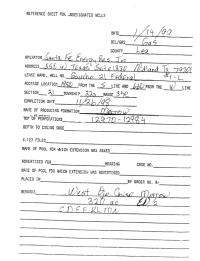 REFERENCE SHEET FOR UNDESIGNATED WELLS
DATE 1/14/99
OIL/GAS Gas
COUNTY Lea
OPERATOR Santa Fe Energy Res. Inc
ADDRESS 550 W Texas Suite 1330 Midland Tx 79701
LEASE NAME, WELL NO. Gaucho 21 Federal #1-L
FOOTAGE LOCATION FROM THE S LINE AND 660 FROM THE W LINE
SECTION 21 TOWNSHIP 22S RANGE 34E
COMPLETION DATE 11/26/98
NAME OF PRODUCING FORMATION Morrow
TOP OF PERFORATIONS 12970-12984
DEPTH TO CASING SHOE
C-123 FILED
NAME OF POOL FOR WHICH EXTENSION WAS ASKED
ADVERTISED FOR HEARING CASE NO.
NAME OF POOL FOR WHICH EXTENSION WAS ADVERTISED
PLACED IN BY ORDER NO. R-
REMARKS West Morrow
320 ac
CDEFKLMN